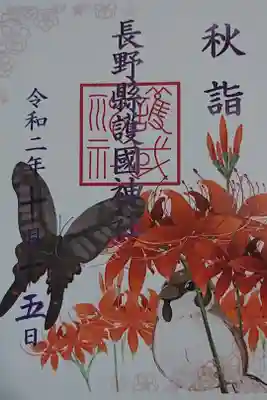 秋詣
長野縣護國神社
令和二年十月五日